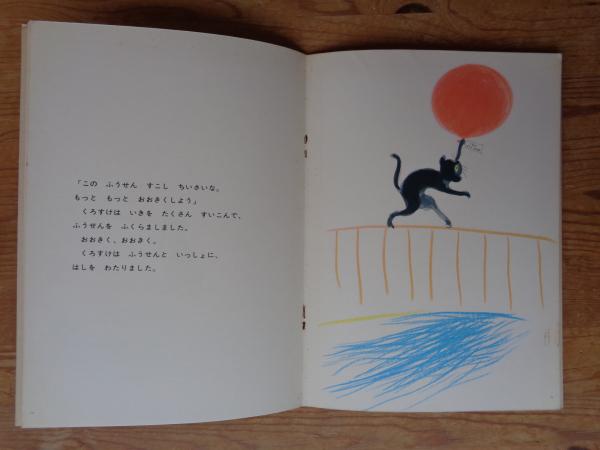 「この　ふうせん　すこし　ちいさいな。
もっと　もっと　おおきくしよう」
　くろすけは　いきを　たくさん　すいこんで、
ふうせんを　ふくらましました。
　おおきく、おおきく。
　くろすけは　ふうせんと　いっしょに、
はしを　わたりました。